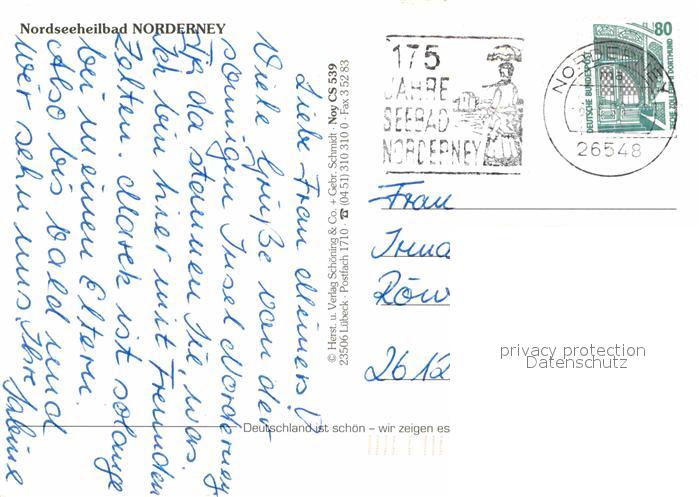 Nordseeheilbad NORDERNEY
Liebe Frau Meiners!
Viele Grüße von der
sonnigen Insel Norderney
Ja da staunen Sie, was.
Ich bin hier mit Freunden
Zelten. Marek ist solange
bei meinen Eltern.
Also bis bald und
wir sehn uns. Ihre Sabine
© Herst. u. Verlag Schöning & Co. + Gebr. Schmidt · Noy CS 539
23506 Lübeck · Postfach 1710 · ☎ (04 51) 310 310 0 · Fax 3 52 83
175
JAHRE
SEEBAD
NORDERNEY
NORDERNEY
26548
80
DEUTSCHE BUNDESPOST
ZECHE ZOLLERN II DORTMUND
Frau
Irma
Röw
2612
privacy protection
Datenschutz
Deutschland ist schön – wir zeigen es